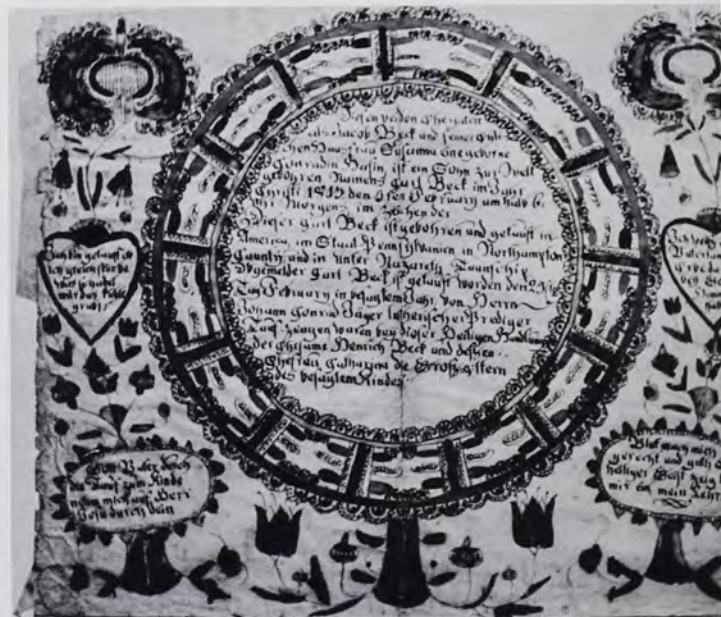 Diesen beiden Eheleuten
als Jacob Beck und seiner Ehli-
chen Hausfrau Susanna eine geborne
Conradin Hasin, ist ein Sohn zur Welt
gebohren Namens Carl Beck im Jahr
Christi 1815 den 6ten February um halb 6
uhr Morgens im Zeichen der
Dieser Carl Beck ist gebohren und getauft in
America, im Staat Pennsylvanien in Northampton
Caunty und in Unter Nazareth Taunschip
Obgemelder Carl Beck ist getauft worden den
Tag February in besagtem Jahr, von Herrn
Johann Conrad Jäger lutherischer Prediger
Tauf-Zeugen waren bey dieser Heiligen Handlung
der Ehrsame Henrich Beck und dessen
Ehefrau Catharina die Groß-eltern
des besagtem Kindes
Ich bin getauft ob
ich gleich sterbe
was schadet
mir das kühle
grab
Ich
Vaterland
Gott Vater durch
die Tauf zum Kinde
nehm mich auf Herr
Jesu durch dein
Blut mach mich
gerecht und
heiliger Geist
mir ein mein